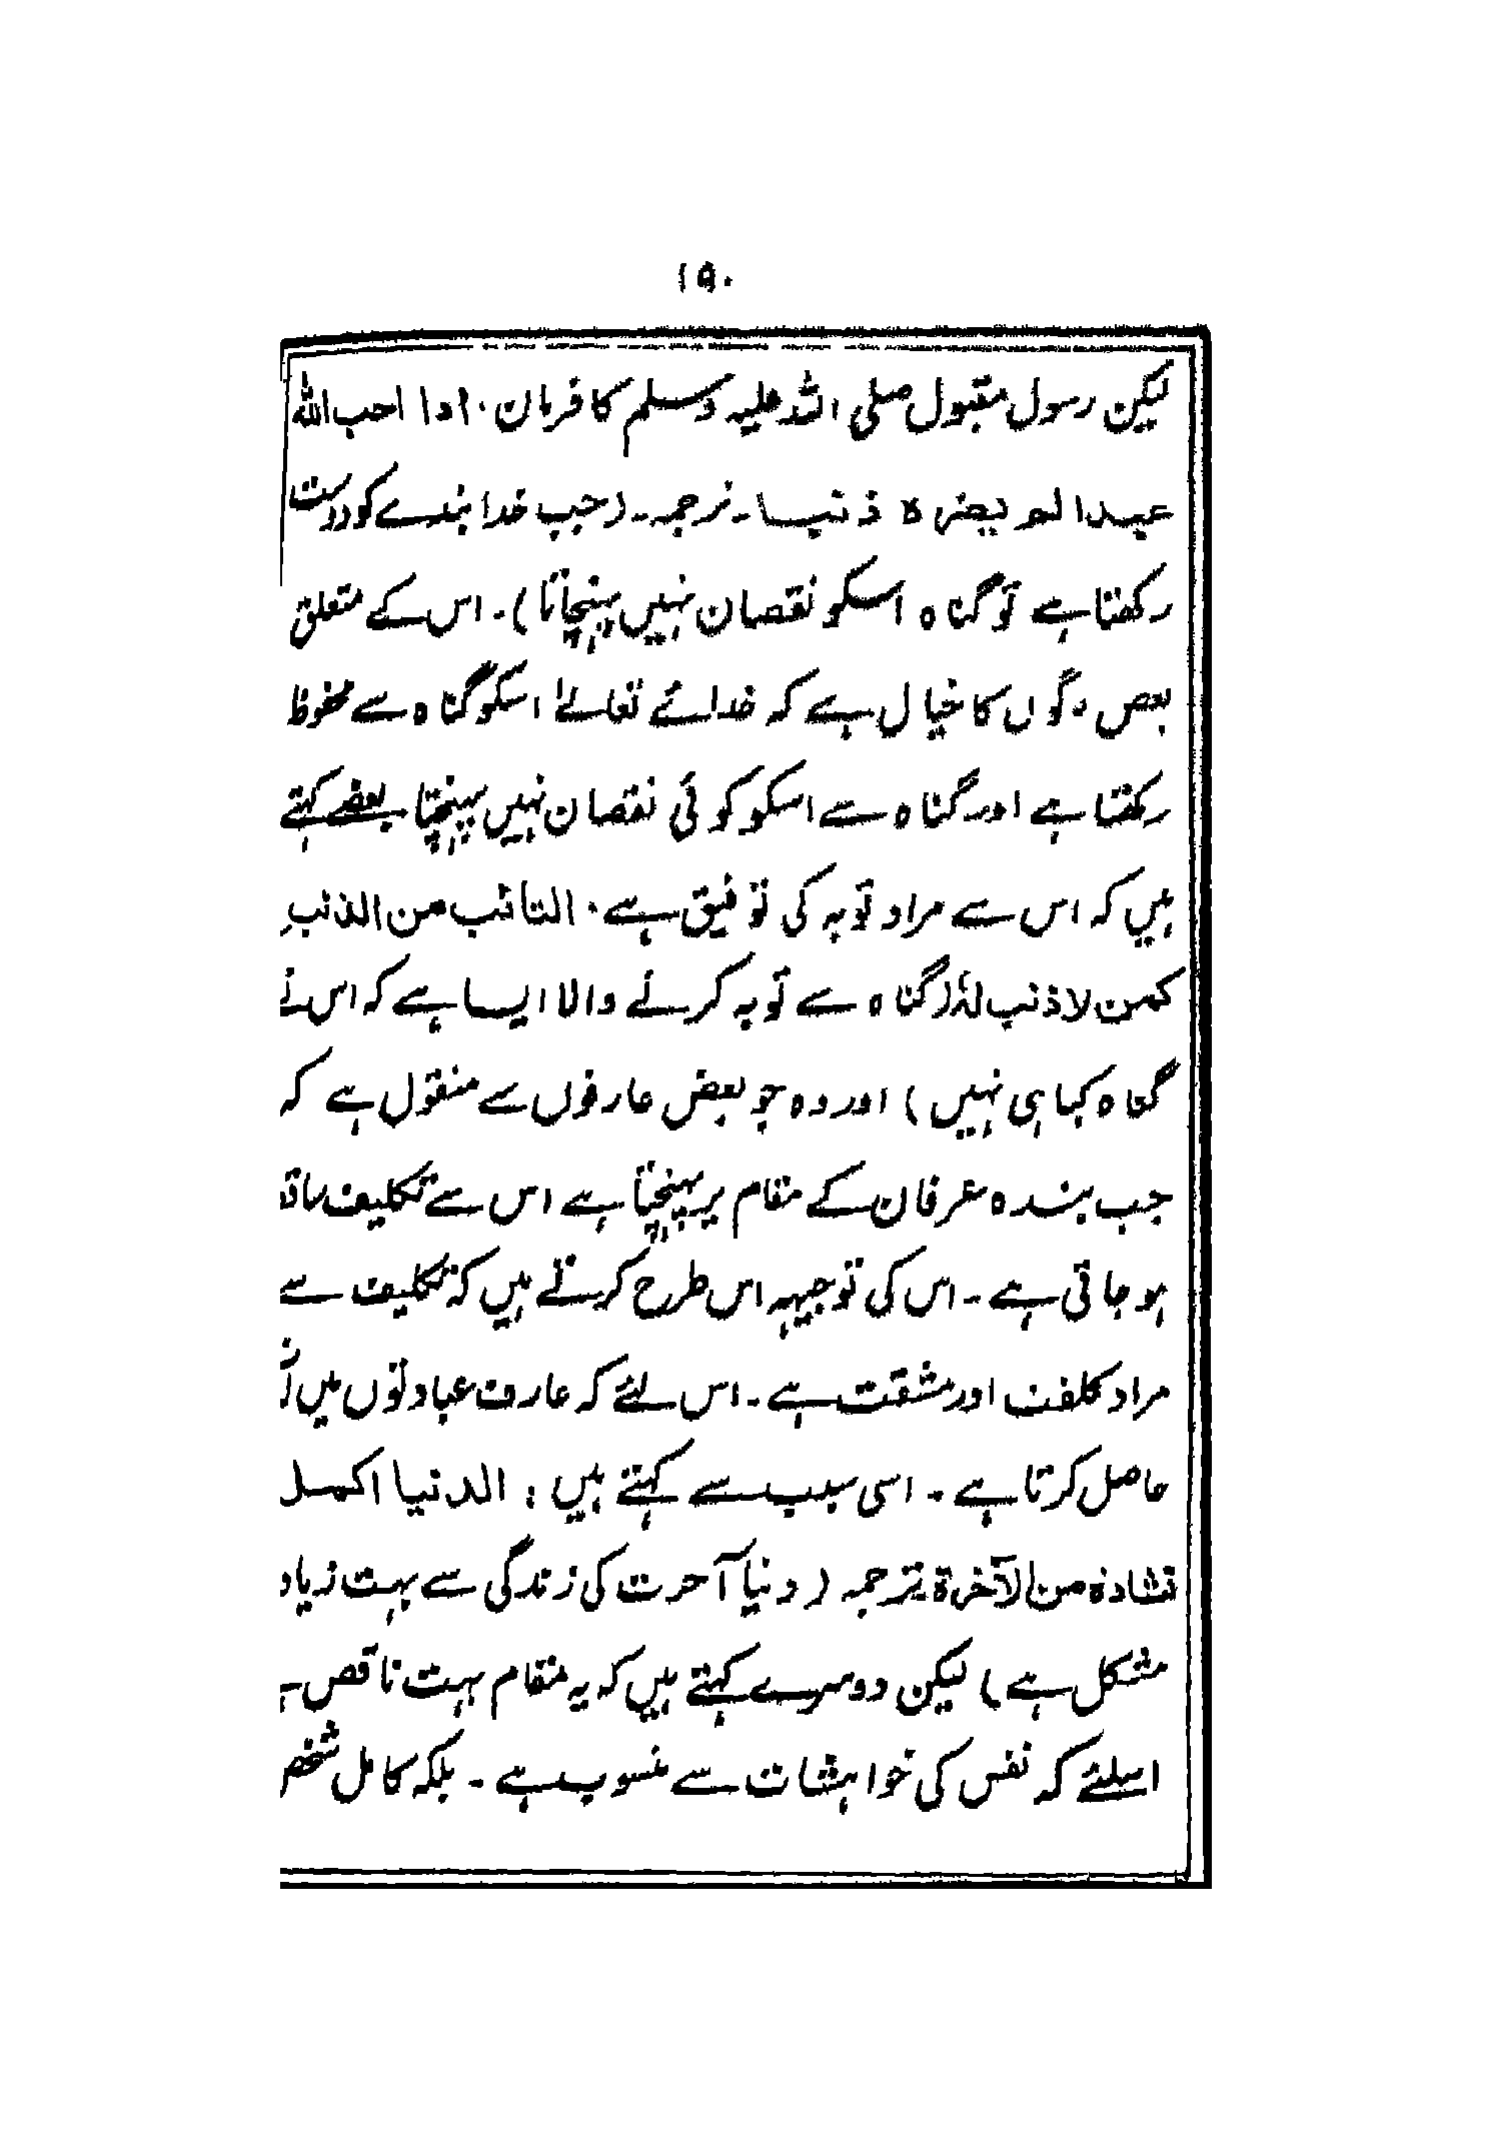 ۱۵۰
لیکن رسول مقبول صلی اللہ علیہ وسلم کا فرمان۔ اذا احب اللہ
عبدا لم یضرہ ذنبا۔ ترجمہ۔ (جب خدا بندے کو دوست
رکھتا ہے تو گناہ اسکو نقصان نہیں پہنچاتا)۔ اس کے متعلق
بعض لوگوں کا خیال ہے کہ خدائے تعالےٰ اسکو گناہ سے محفوظ
رکھتا ہے اور گناہ سے اسکو کوئی نقصان نہیں پہنچتا بعضے کہتے
ہیں کہ اس سے مراد توبہ کی توفیق ہے۔ التائب من الذنب
کمن لا ذنب لہٗ (گناہ سے توبہ کرنے والا ایسا ہے کہ اس نے
گناہ کیا ہی نہیں) اور وہ جو بعض عارفوں سے منقول ہے کہ
جب بندہ عرفان کے مقام پر پہنچتا ہے اس سے تکلیف
ہو جاتی ہے۔ اس کی توجیہہ اس طرح کرتے ہیں کہ تکلیف سے
مراد کلفت اور مشقت ہے۔ اس لئے کہ عارف عبادتوں میں
حاصل کرتا ہے۔ اسی سبب سے کہتے ہیں: الدنیا اکمل
نشاذہ من الآخرۃ ترجمہ (دنیا آخرت کی زندگی سے بہت زیاد
مشکل ہے) لیکن دوسرے کہتے ہیں کہ یہ مقام بہت ناقص
اسلئے کہ نفس کی خواہشات سے منسوب ہے۔ بلکہ کامل شخص